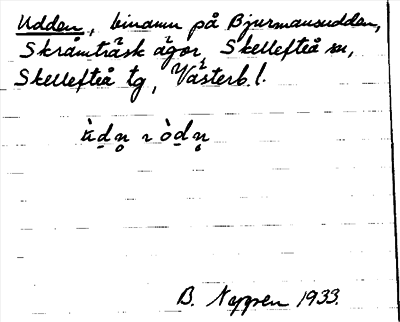 Udden, binamn på Bjurmansudden,
Skråmträsk ägor, Skellefteå sn,
Skellefteå tg, Västerb. l.
B. 1933.